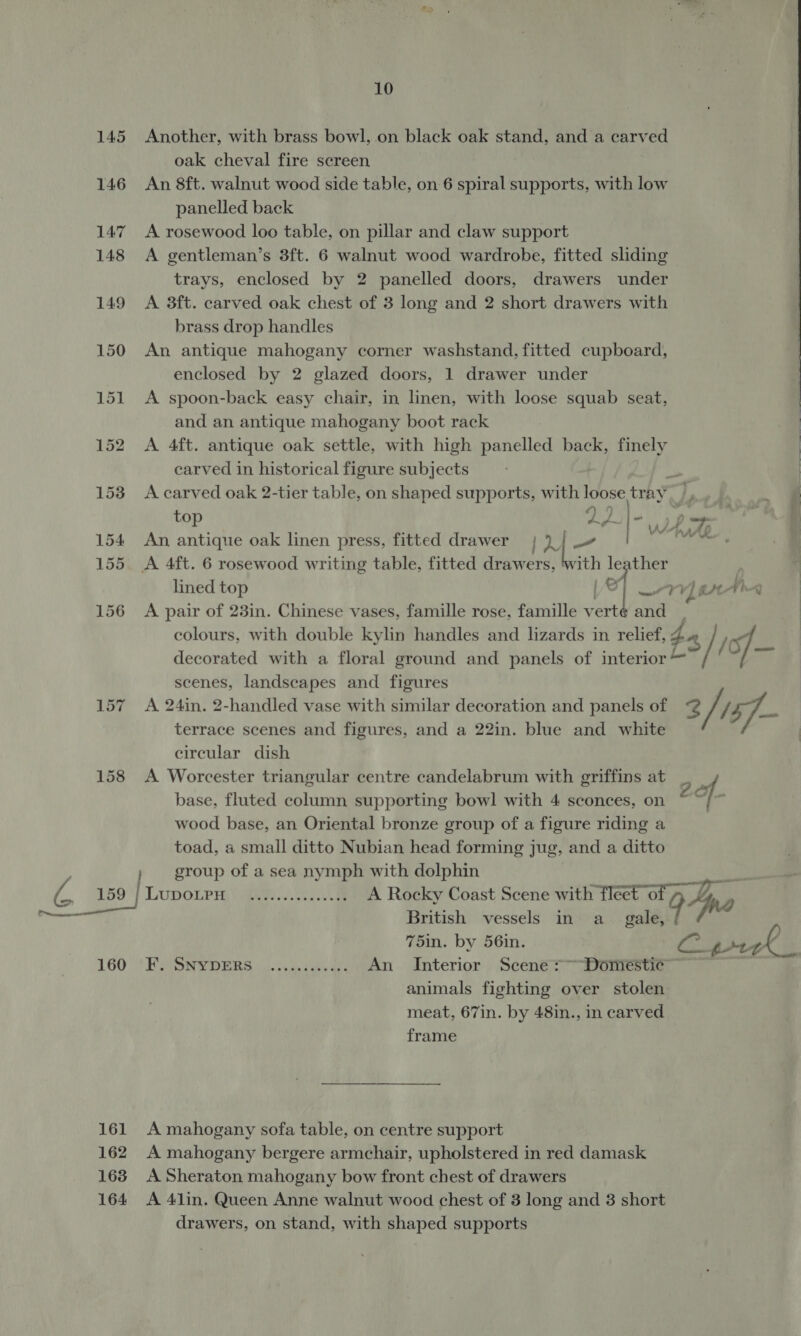 10
145 Another, with brass bowl, on black oak stand, and a carved
oak cheval fire screen
146 An 8ft. walnut wood side table, on 6 spiral supports, with low
panelled back
147 A rosewood loo table, on pillar and claw support
148 A gentleman's 3ft. 6 walnut wood wardrobe, fitted sliding
trays, enclosed by 2 panelled doors, drawers under
149 A 3ft. carved oak chest of 3 long and 2 short drawers with
brass drop handles
150 An antique mahogany corner washstand, fitted cupboard,
enclosed by 2 glazed doors, 1 drawer under
151 A spoon-back easy chair, in linen, with loose squab seat,
and an antique mahogany boot rack
152 A 4ft. antique oak settle, with high panelled back, finely
carved in historical figure subjects
153 A carved oak 2-tier table, on shaped supports, with loose tray
top 22/-
154 An antique oak linen press, fitted drawer
155 A 4ft. 6 rosewood writing table, fitted drawers, with leather
lined top
156 A pair of 23in. Chinese vases, famille rose, famille verte and
colours, with double kylin handles and lizards in relief,
decorated with a floral ground and panels of interior
scenes, landscapes and figures
157 A 24in. 2-handled vase with similar decoration and panels of 3/15/-
terrace scenes and figures, and a 22in. blue and white
circular dish
158 A Worcester triangular centre candelabrum with griffins at
base, fluted column supporting bowl with 4 sconces, on 20/-
wood base, an Oriental bronze group of a figure riding a
toad, a small ditto Nubian head forming jug, and a ditto
group of a sea nymph with dolphin
159 LUDOLPH ............... A Rocky Coast Scene with fleet of
British vessels in a gale,
75in. by 56in.
160 F. SNYDERS ............ An Interior Scene: Domestic
animals fighting over stolen
meat, 67in. by 48in., in carved
frame
161 A mahogany sofa table, on centre support
162 A mahogany bergere armchair, upholstered in red damask
163 A Sheraton mahogany bow front chest of drawers
164 A 41in. Queen Anne walnut wood chest of 3 long and 3 short
drawers, on stand, with shaped supports